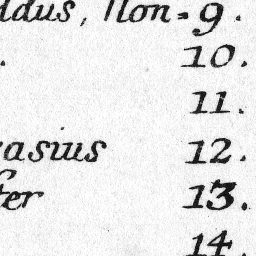 ddus, Non. 9.
. 10.
11.
asius 12.
fer 13.
14.